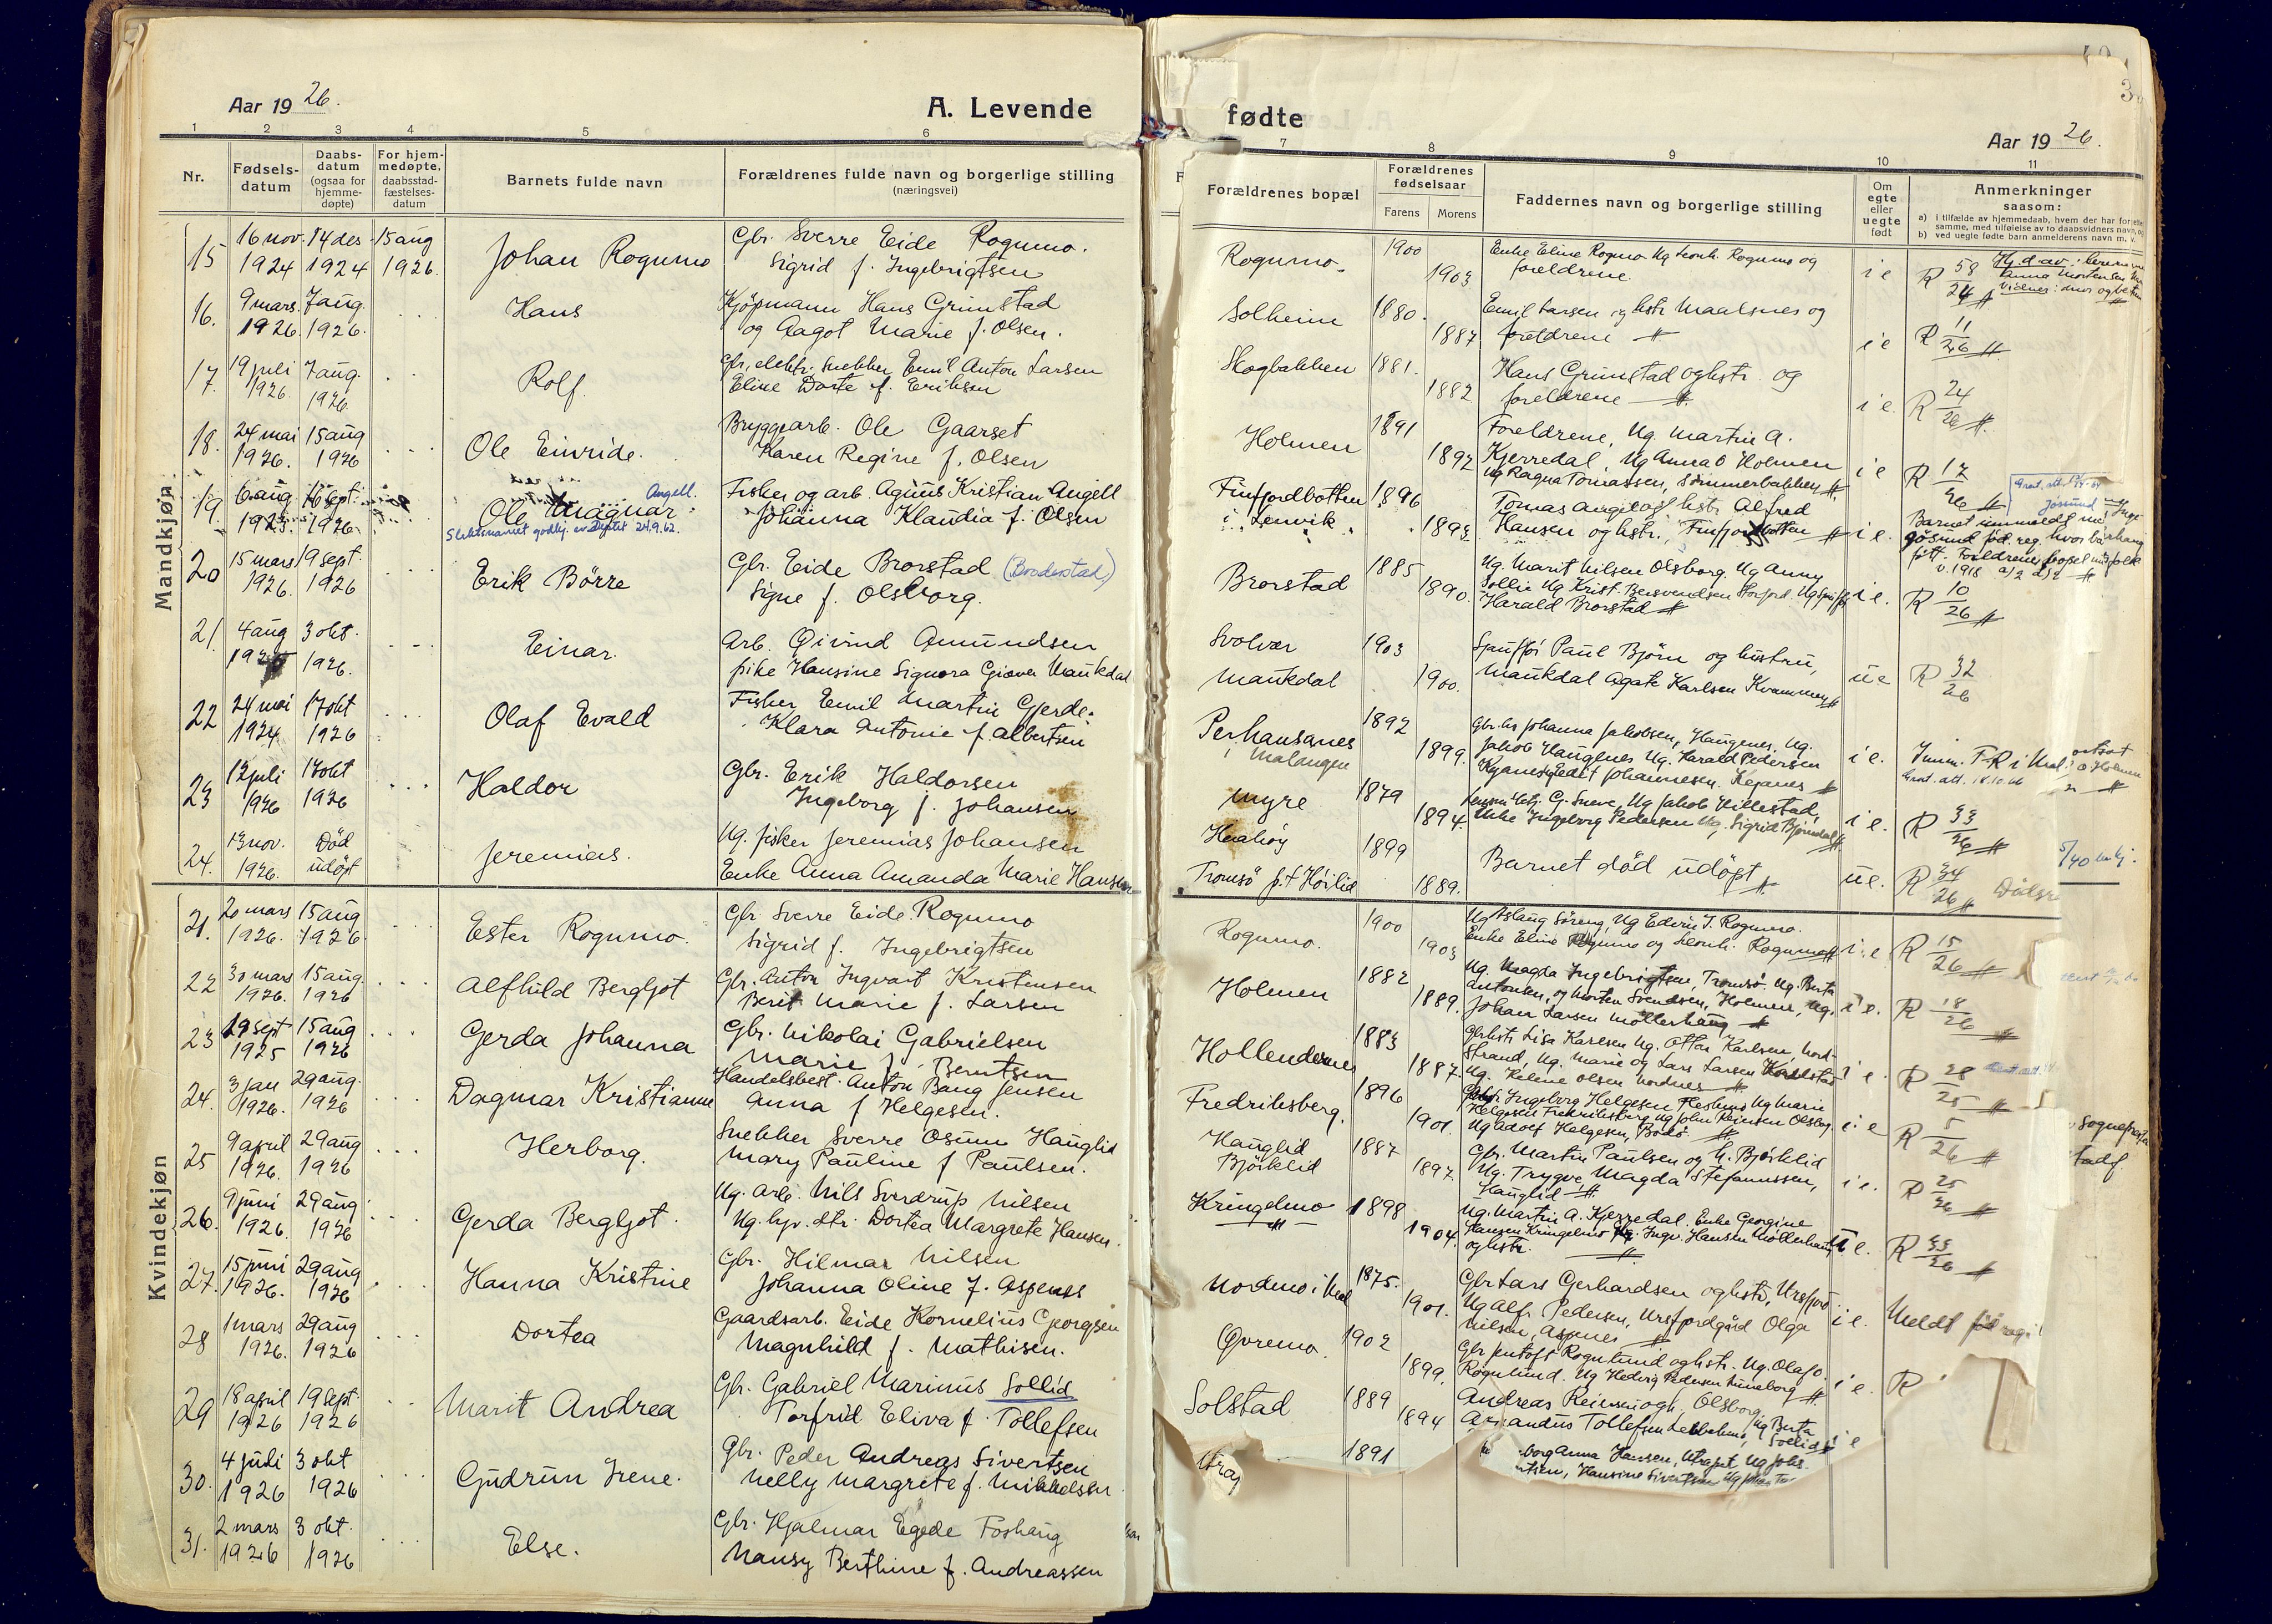 Aar 19 26.
A. Levende
1 2 3 4 5 6
Nr.
Fødsels-
datum
Daabs-
datum
(ogsaa for
hjemme-
døpte)
For hjem-
medøpte,
daabsstad-
fæstelses-
datum
Barnets fulde navn
Forældrenes fulde navn og borgerlige stilling
(næringsvei)
Mandkjøn
15 16 nov. 14 des. 15 aug
1924 1924 1926.
Johan Rognmo
Gbr. Sverre Eide Rognmo.
Sigrid f. Ingebrigtsen
16. 9 mars. 7 aug.
1926. 1926.
Hans
Kjöpmann Hans Grimstad
og Aagot Marie f. Olsen.
17. 19 juli 7 aug.
1926. 1926.
Rolf.
Snekker Emil Anton Larsen
Eline Dorte f. Eriksen
18. 24 mai 15 aug
1926. 1926
Ole Einride.
Bryggearb. Ole Gaarset
Karen Regine f. Olsen
19. 6 aug. 16 sept.
1923. 1926.
Ole Magnar
Angell.
Slektsnavnet godkj. av Dptet 24.9.62.
Fisker og arb. Aginus Kristian Angell
Johanna Klaudia f. Olsen
20 15 mars 19 sept.
1926. 1926
Erik Börre
Gbr. Eide Brorstad (Broderstad)
Signe f. Olsborg.
21. 4 aug 3 okt.
1926.
Einar.
Arb. Øivind Amundsen
pike Hansine Signora Giæver Maukdal
22 24 mai 17 okt
1924 1926
Olaf Evald
Fisker Emil Martin Gjerde.
Klara Antonie f. Albertsen
23 12 juli 17 okt
1926 1926
Haldor
Gbr. Erik Haldorsen
Ingeborg f. Johansen
24. 13 nov. Död
1926. udöpt
Jeremias.
Ug. fisker Jeremias Johansen
Enke Anna Amanda Marie Hansen
Kvindekjøn
21. 20 mars 15 aug
1926. 1926.
Ester Rognmo.
Gbr Sverre Eide Rognmo
Sigrid f. Ingebrigtsen
22 30 mars 15 aug.
1926. 1926
Alfhild Bergljot
Gbr. Anton Ingvart Kristensen
Berit Marie f. Larsen
23 19 sept 15 aug
1925 1926
Gerda Johanna
Gbr. Nikolai Gabrielsen
Marie f. Berntsen
24. 3 jan 29 aug.
1926. 1926
Dagmar Kristianne
Handelsbest. Anton Bang Jensen
Anna f Helgesen.
25 9 april 29 aug
1926. 1926
Herborg.
Snekker Sverre Osum Hauglid
Mary Pauline f Paulsen.
26. 9 juni 29 aug
1926. 1926
Gerda Bergljot.
Ug. arb. Nils Sverdrup Nilsen
Ug. hjv. dtr. Dortea Margrete Hansen.
27. 15 juni 29 aug
1926. 1926
Hanna Kristine
Gbr. Hilmar Nilsen
Johanna Oline f. Aspenes
28 1 mars 29 aug
1926. 1926
Dortea
Gaardsarb. Eide Kornelius Georgsen
Magnhild f. Mathisen.
29 18 april 19 sept.
1926 1926
Marit Andrea
Gbr. Gabriel Marinus Sollid
Torfrid Eliva f. Tollefsen
30. 4 juli 3 okt
1926 1926
Gudrun Irene.
Gbr. Peder Andreas Sivertsen
Nelly Margrete f. Mikkelsen.
31. 2 mars 3 okt.
1926 1926
Else.
Gbr. Hjalmar Egede Foshaug
Nansy Berthine f. Andreassen
fødte
Aar 19 26.
7 8 9 10 11
Forældrenes bopæl
Forældrenes
fødselsaar
Farens Morens
Faddernes navn og borgerlige stilling
Om
egte
eller
uegte
født
Anmerkninger
saasom:
a) i tilfælde av hjemmedaab, hvem der har
samme, med tilføielse av to daabsvidners navn,
b) ved uegte fødte barn anmelderens navn m. v.
Rognmo. 1900 1903
Enke Eline Rognmo Ug Leonh. Rognmo og
foreldrene.
i e R 58/24
Solheim 1880. 1887
Emil Larsen og hstr. Maalsnes og
foreldrene
i e R 11/26
Skogbakken 1881. 1882
Hans Grimstad og hstr. og
foreldrene
i e. R 24/26
Holmen 1891 1892
Foreldrene, Ug. Martin A.
Kjerredal, Ug Anna O Holmen
Ug Ragna Tomassen, Sommerbakken
i e R 17/26
Finfjordbotten
i Lenvik. 1896 1893
Tomas Angell og hstr. Alfred
Hansen og hstr., Finfjordbotten
i e.
Brorstad 1885 1890.
Ug. Marit Nilsen Olsborg. Ug Anny
Sollie Ug Krist. Bersvendsen Storfjord.
Harald Brorstad
i e. R 10/26
Svolvær
Maukdal 1903 1900.
Paul Björn og hustru,
Maukdal Agate Karlsen Kvammen
u e R 32/26
Perhansanes
i Malangen 1892 1899.
Johanna Jakobsen, Haugenes, Ug.
Jakob Haugenes Ug. Harald Pedersen
i e.
Myre 1879 1894.
Enke Ingeborg Pedersen Ug. Sigrid Björndal
i e. R 33/26
Tromsö p.t Höilid 1899 1889.
Barnet död udöpt
u e. R 34/26
Rognmo. 1900 1903
Ug Aslaug Söreng, Ug Edvin J. Rognmo.
Enke Eline Rognmo og Leonh. Rognmo
i. e R 15/26
Holmen 1882 1889.
Ug. Magda Ingebrigtsen, Tromsö. Ug. Berta
Antonsen, og Morten Svendsen, Holmen, Ug.
Johan Larsen Möllerhaug
i e. R 18/26
Hollenderne 1883 1887.
Gbrhstr. Lisa Karlsen Ug. Ottar Karlsen, Nord-
Strand, Ug. Marie og Lars Larsen Karlstad
Ug. Helene Olsen Nordnes
i e. R 28/25
Fredriksberg. 1896 1901.
Ingeborg Helgesen Ug Marie
Helgesen Fredriksberg Ug John Reiersen Olsborg.
Ug Adolf Helgesen, Bodö
i e R 5/26
Hauglid
Björklid 1887 1897
Gbr. Martin Paulsen og h. Björklid
Ug. Trygve, Magda Stefanussen,
Hauglid
i e. R 25/26
Kringelmo 1898 1904.
Ug. Martin A. Kjerredal. Enke Georgine
Hansen Kringelmo Ug. Ingv. Hansen Möllerhaug
og hstr.
u e. R 33/26
Nordmo i Mal 1875. 1901.
Gbr Lars Gerhardsen og hstr, Ursfjord
Ug Alfr. Pedersen, Ursfjordgård Olga
Nilsen, Aspenes
i e. Meldt
Øvremo. 1902 1899.
Gbr Jentoft Rognlund og hstr. Ug. Olaf O.
Rognlund. Ug Hedvig Pedersen Luneborg
i e. R
Solstad 1889 1894
Andreas Reiersen og h. Olsborg
Amandus Tollefsen Ug Berta
Sollid
i e
1891
Anna Hansen, Ug Johs.
Hansine Sivertsen